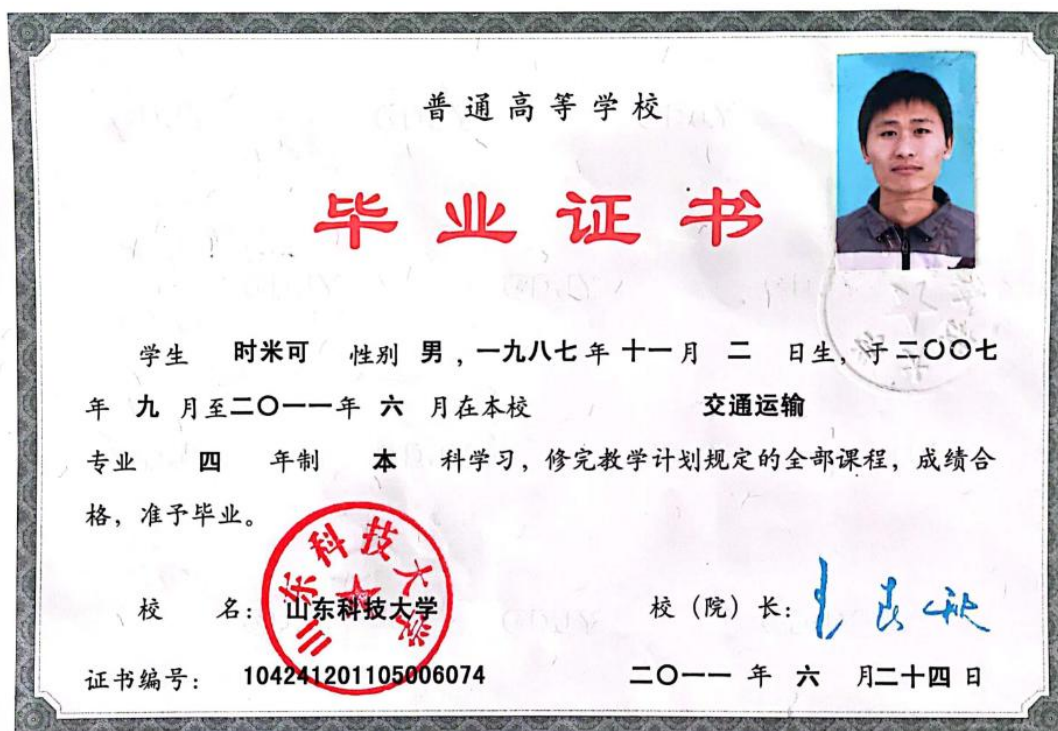 普通高等学校
毕业证书
学生 时米可 性别 男，一九八七年 十一月 二 日生，于二〇〇七
年 九 月至二〇一一年 六 月在本校 交通运输
专业 四 年制 本 科学习，修完教学计划规定的全部课程，成绩合
格，准予毕业。
山东科技大学
校 名：山东科技大学 校（院）长：
证书编号：104241201105006074 二〇一一 年 六 月二十四日